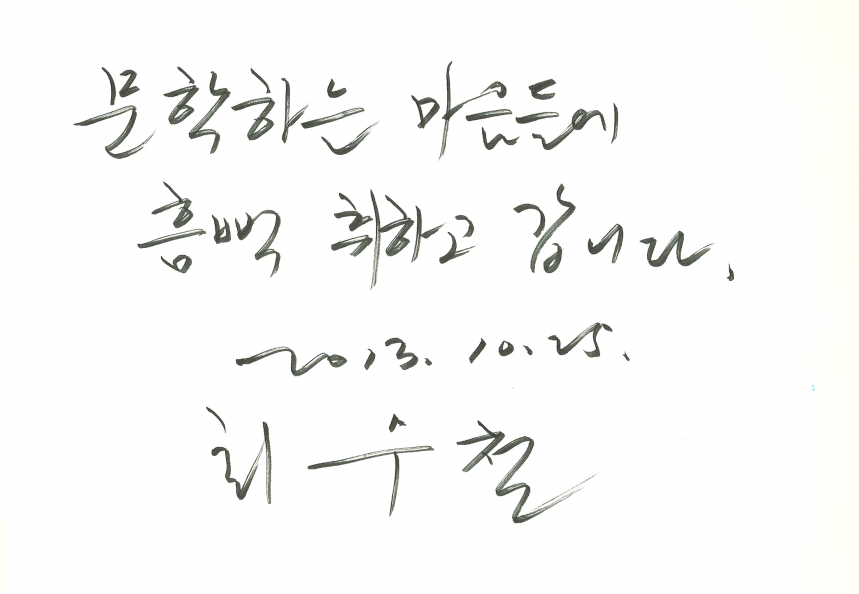 문학하는 마음들에
흠뻑 취하고 갑니다.
2013. 10. 25.
최수철